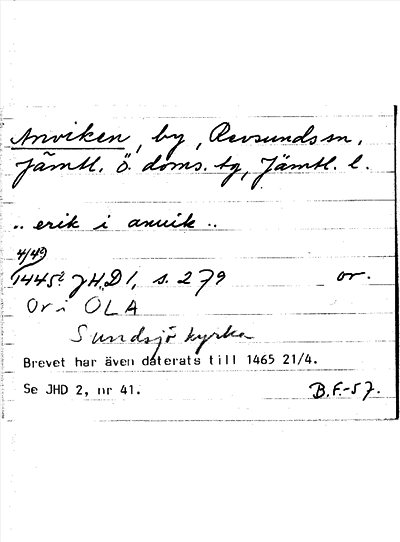 Anviken, by, Revsunds sn,
Jämtl. Ö. doms. tg, Jämtl. l.
.. erik i anuik ..
4/4?
1445? JHD 1, s. 279 or.
Or i ÖLA
Sundsjö kyrka
Brevet har även daterats till 1465 21/4.
Se JHD 2, nr 41. B.F.-57.